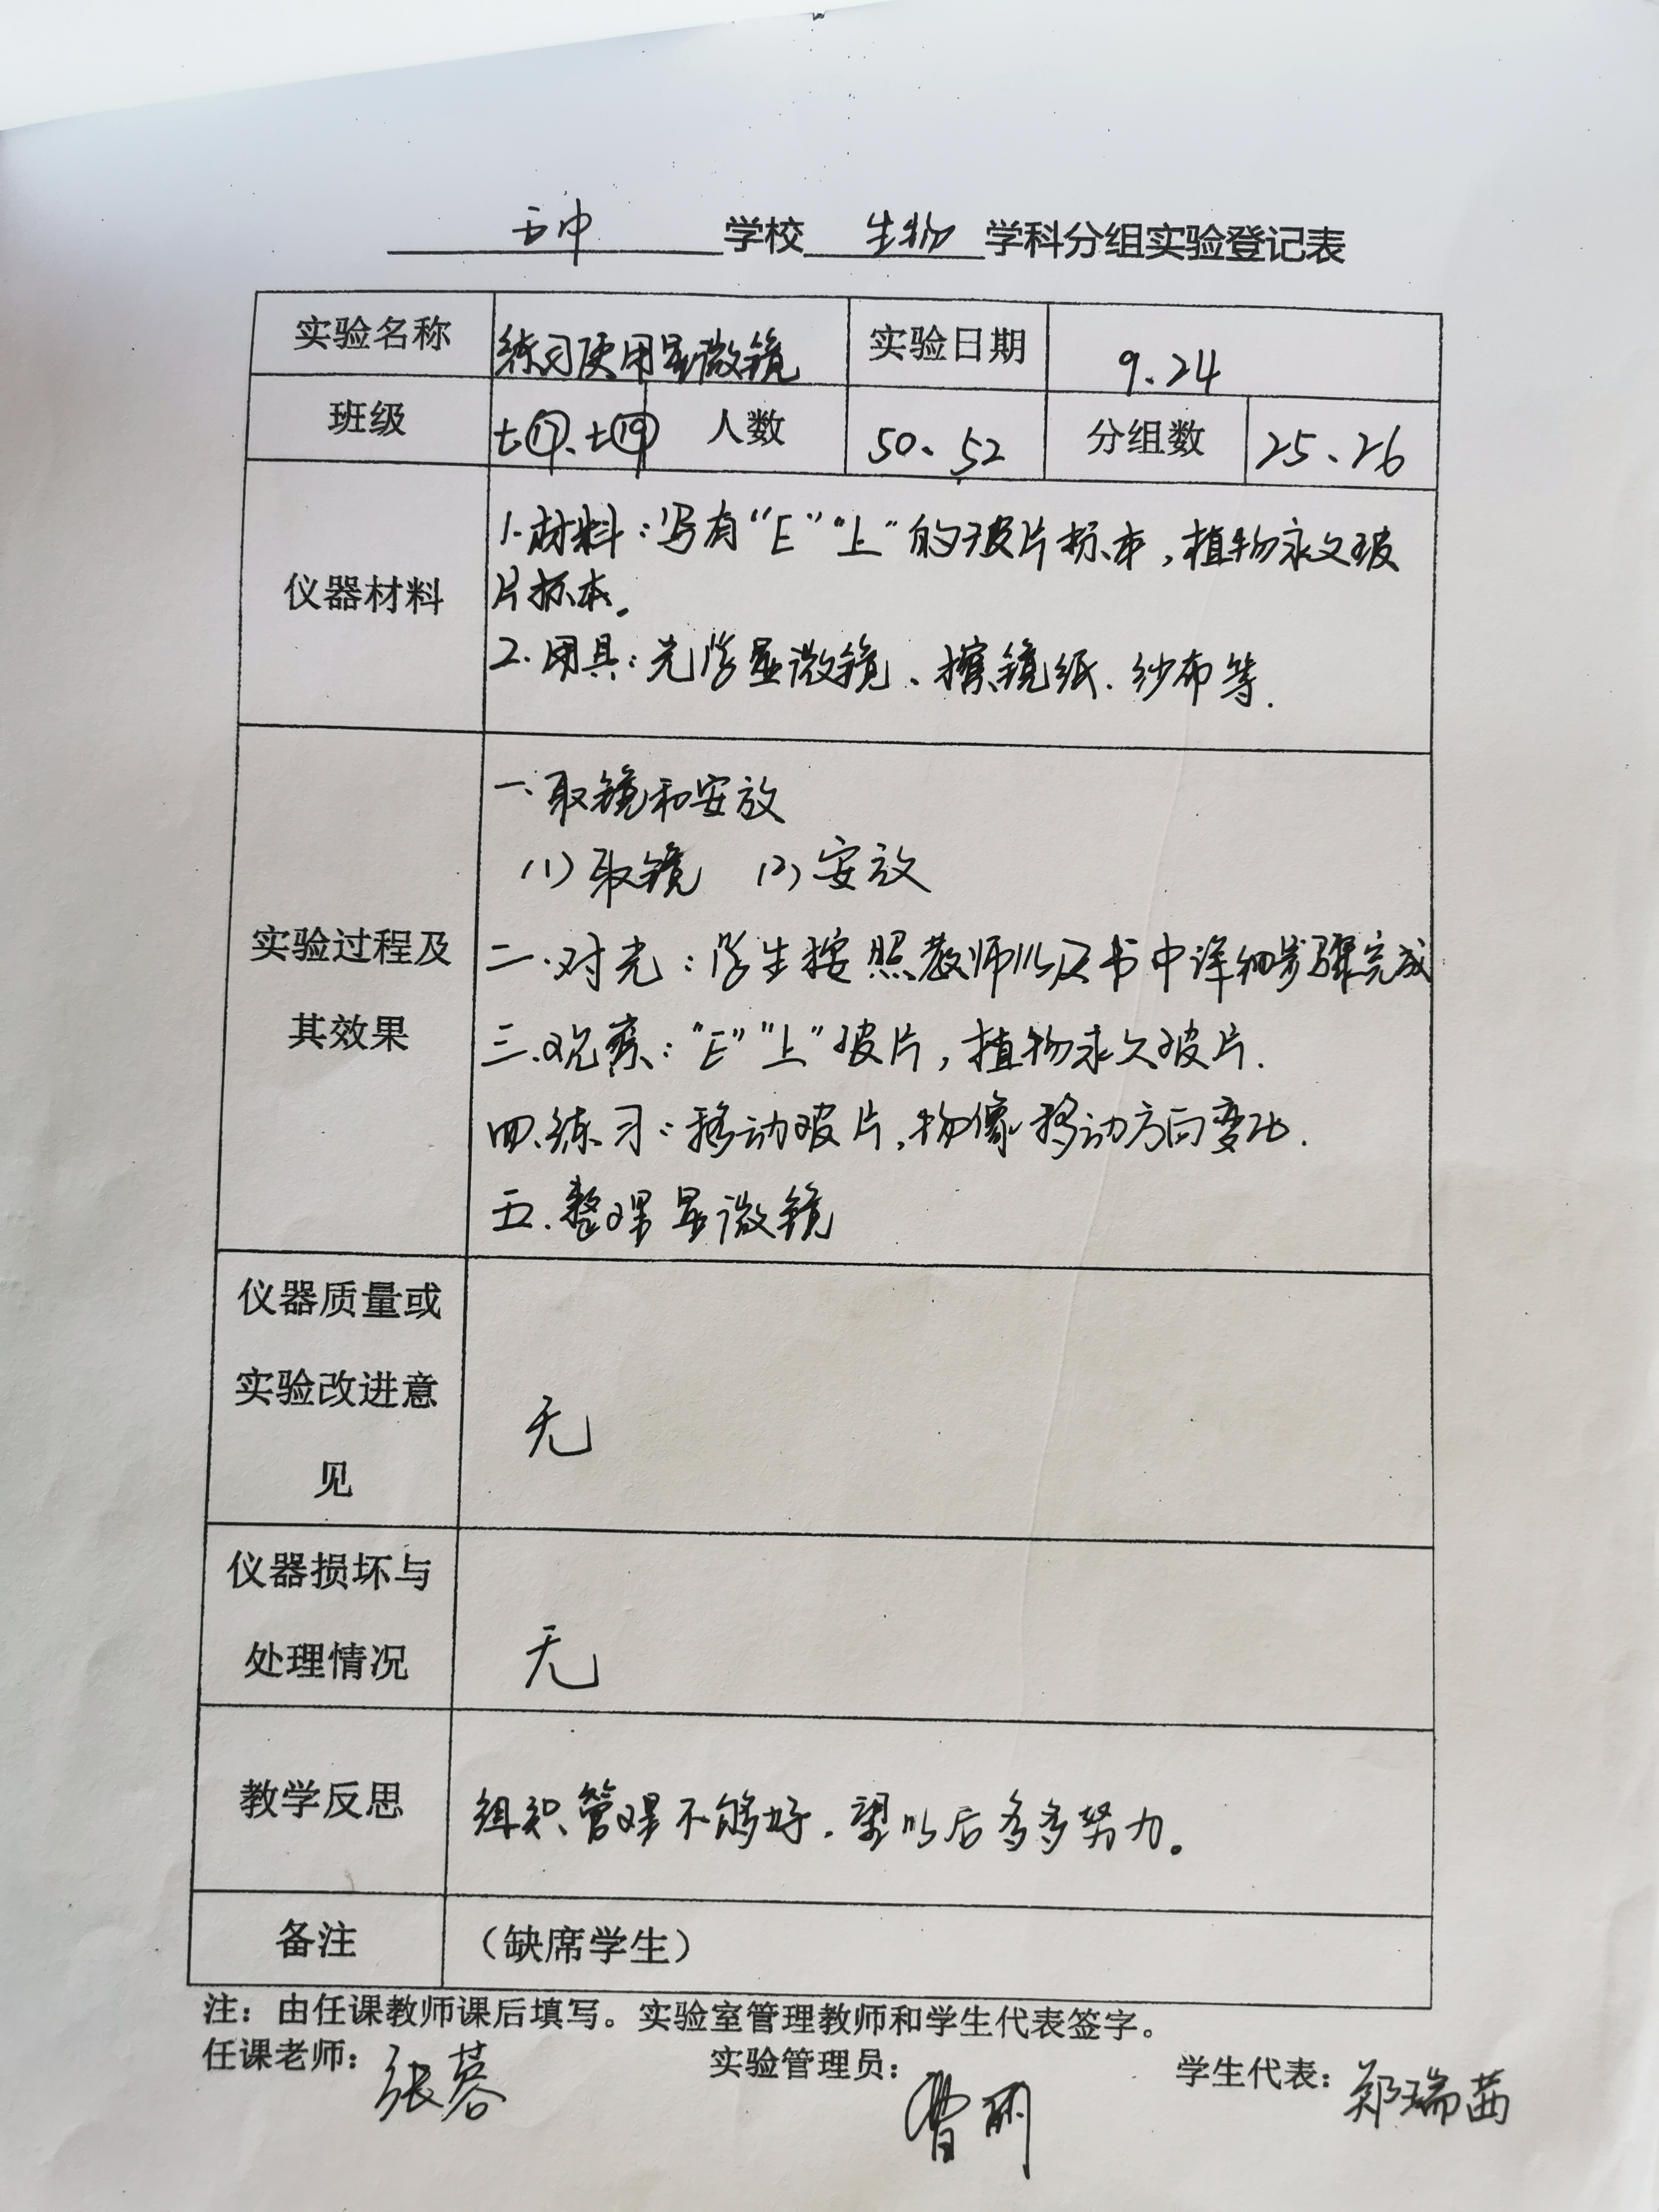 五中 学校 生物 学科分组实验登记表
实验名称 练习使用显微镜 实验日期 9.24
班级 七⑰、七⑲ 人数 50、52 分组数 25、26
仪器材料
1.材料：写有“E”“上”的玻片标本，植物永久玻
片标本。
2.用具：光学显微镜、擦镜纸、纱布等.
实验过程及
其效果
一、取镜和安放
(1)取镜 (2)安放
二.对光：学生按照教师以及书中详细步骤完成
三.观察：“E”“上”玻片，植物永久玻片.
四.练习：移动玻片，物像移动方向变化.
五.整理显微镜
仪器质量或
实验改进意
见
无
仪器损坏与
处理情况
无
教学反思 组织管理不够好，望以后多多努力。
备注 （缺席学生）
注：由任课教师课后填写。实验室管理教师和学生代表签字。
任课老师：张蓉 实验管理员：曹丽 学生代表：郑瑞茜